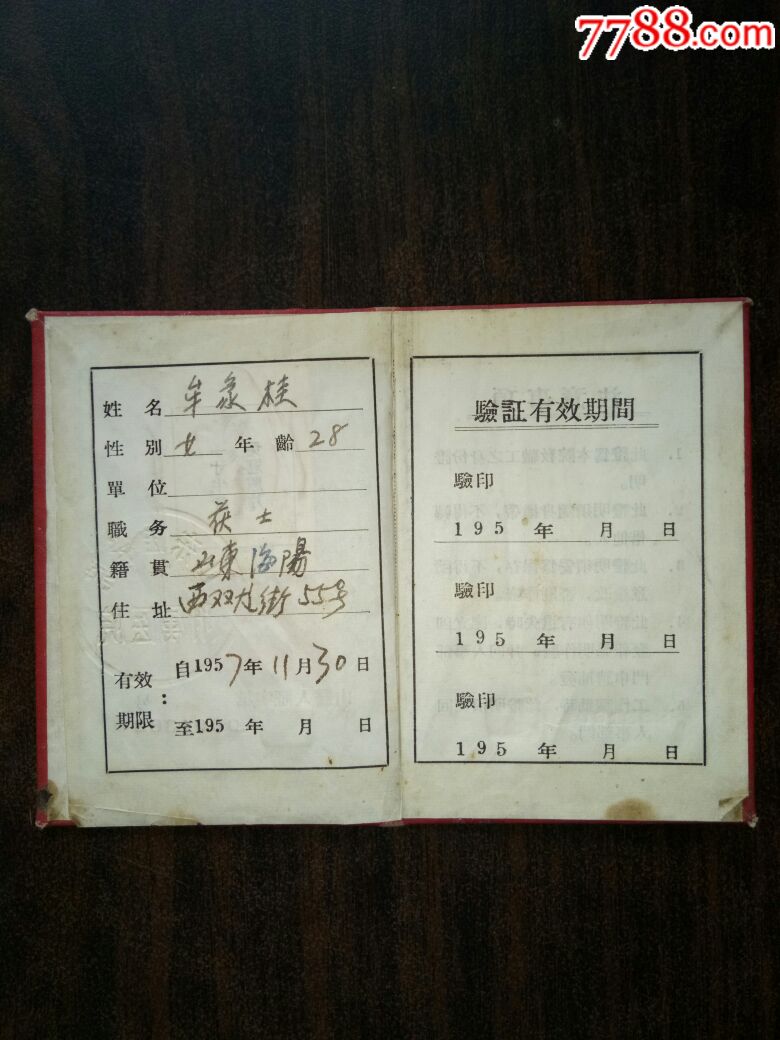 7788.com
姓名 牟彖桂
性別 女 年齡 28
單位
職务 茯士
籍貫 山東海陽
住址 西双龙街55号
有效期限：
自1957年11月30日
至195 年 月 日
驗証有效期間
驗印
195 年 月 日
驗印
195 年 月 日
驗印
195 年 月 日